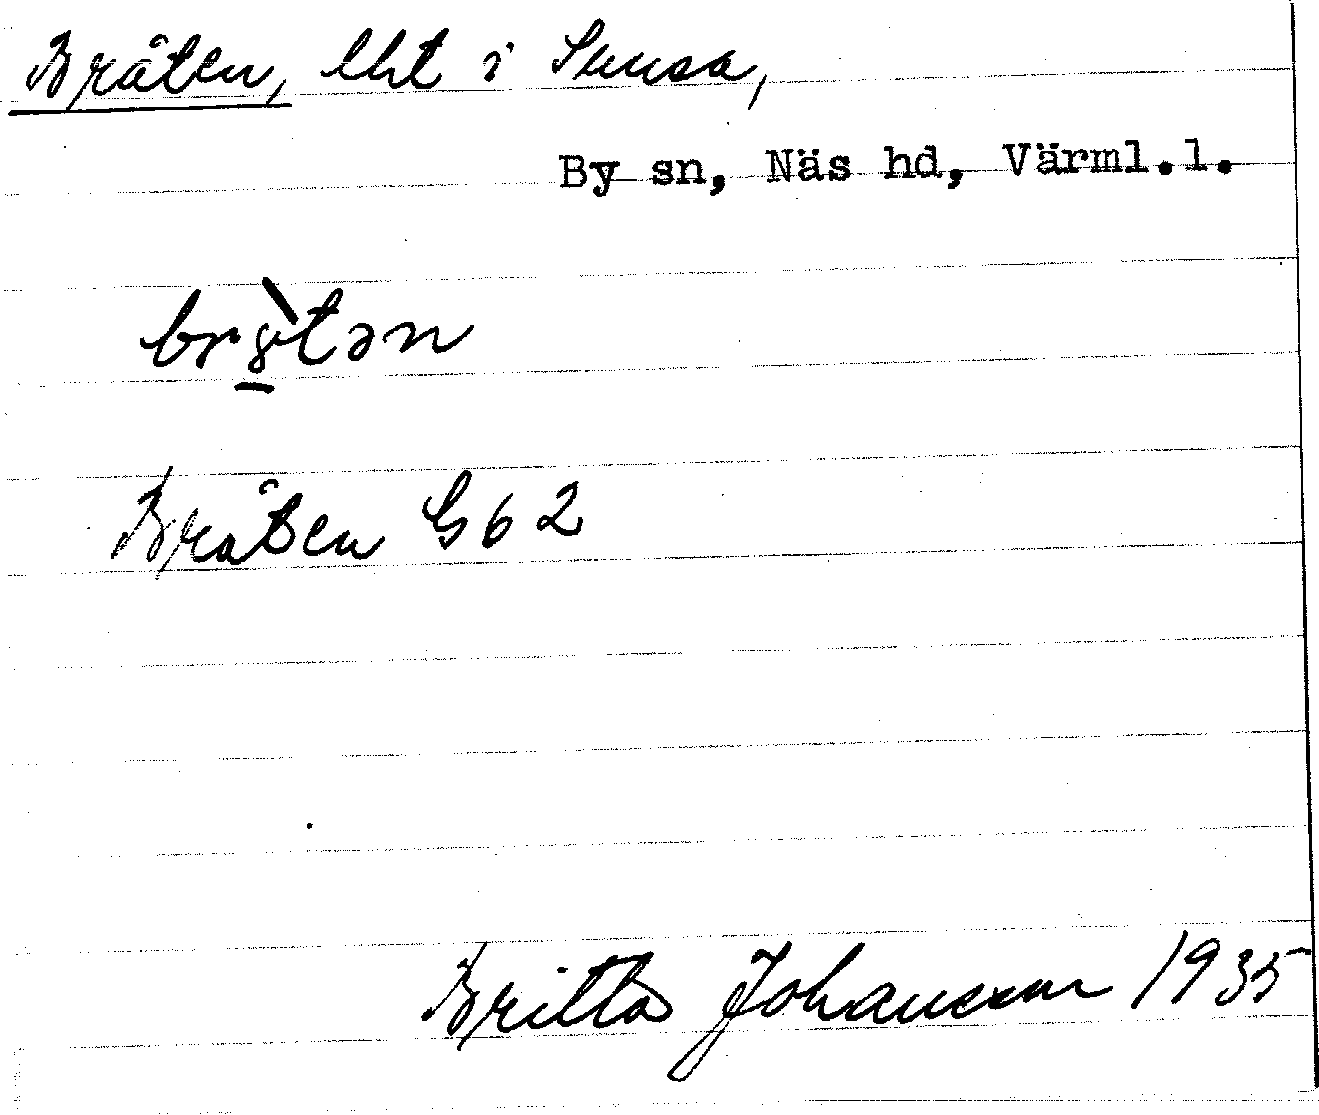 Bråten, lht i Smusa,
By sn, Näs hd, Värml.l.
brətən
Bråten G62
Britta Johansson 1935